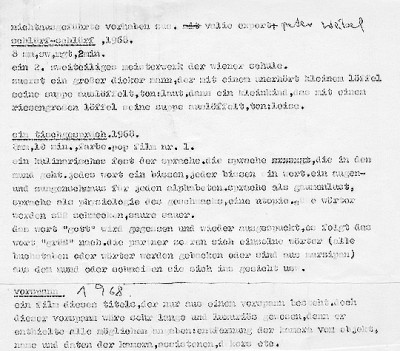 nichtausgeführte vorhaben zus. mit valie export+ peter weibel
schlürf-schlürf ,1968.
8 mm,sw,mgt,2min.
ein 2. zweiteiliges meisterwerk der wiener schule.
zuerst ein großer dicker mann,der mit einem unerhört kleinem löffel
seine suppe auslöffelt,ton:laut,dann ein kleinkind,das mit einem
riesengroßen löffel seine suppe auslöffelt,ton:leise.
ein tischgespräch.1968.
10 min.,farbe.pop film nr. 1.
ein kulinarisches fest der sprache.die sprache die in den
mund geht.jedes wort ein bissen,jeder bissen ein wort.ein augen-
und zungenschmaus für jeden alphabeten.sprache als gaumenlust,
sprache als physiologie des geschmacks,eine utopie.g te wörter
werden süß schmecken,saure sauer.
das wort "gott" wird gegessen und wieder ausgespuckt,es folgt das
wort nach.die partner sich einzelne wörter (alle
buchstaben oder wörter werden gebacken oder sind aus marzipan)
aus dem mund oder schmeißen sie sich ins gesicht usw.
vorspann. 1968
ein film dieses titels,der nur aus einem vorspann besteht.doch
dieser vorspann wäre sehr lange und luxuriös gewesen,denn er
enthielte alle möglichen angaben:entfernung der kamera vom objekt,
name und daten der kamera,assistenten, etc.